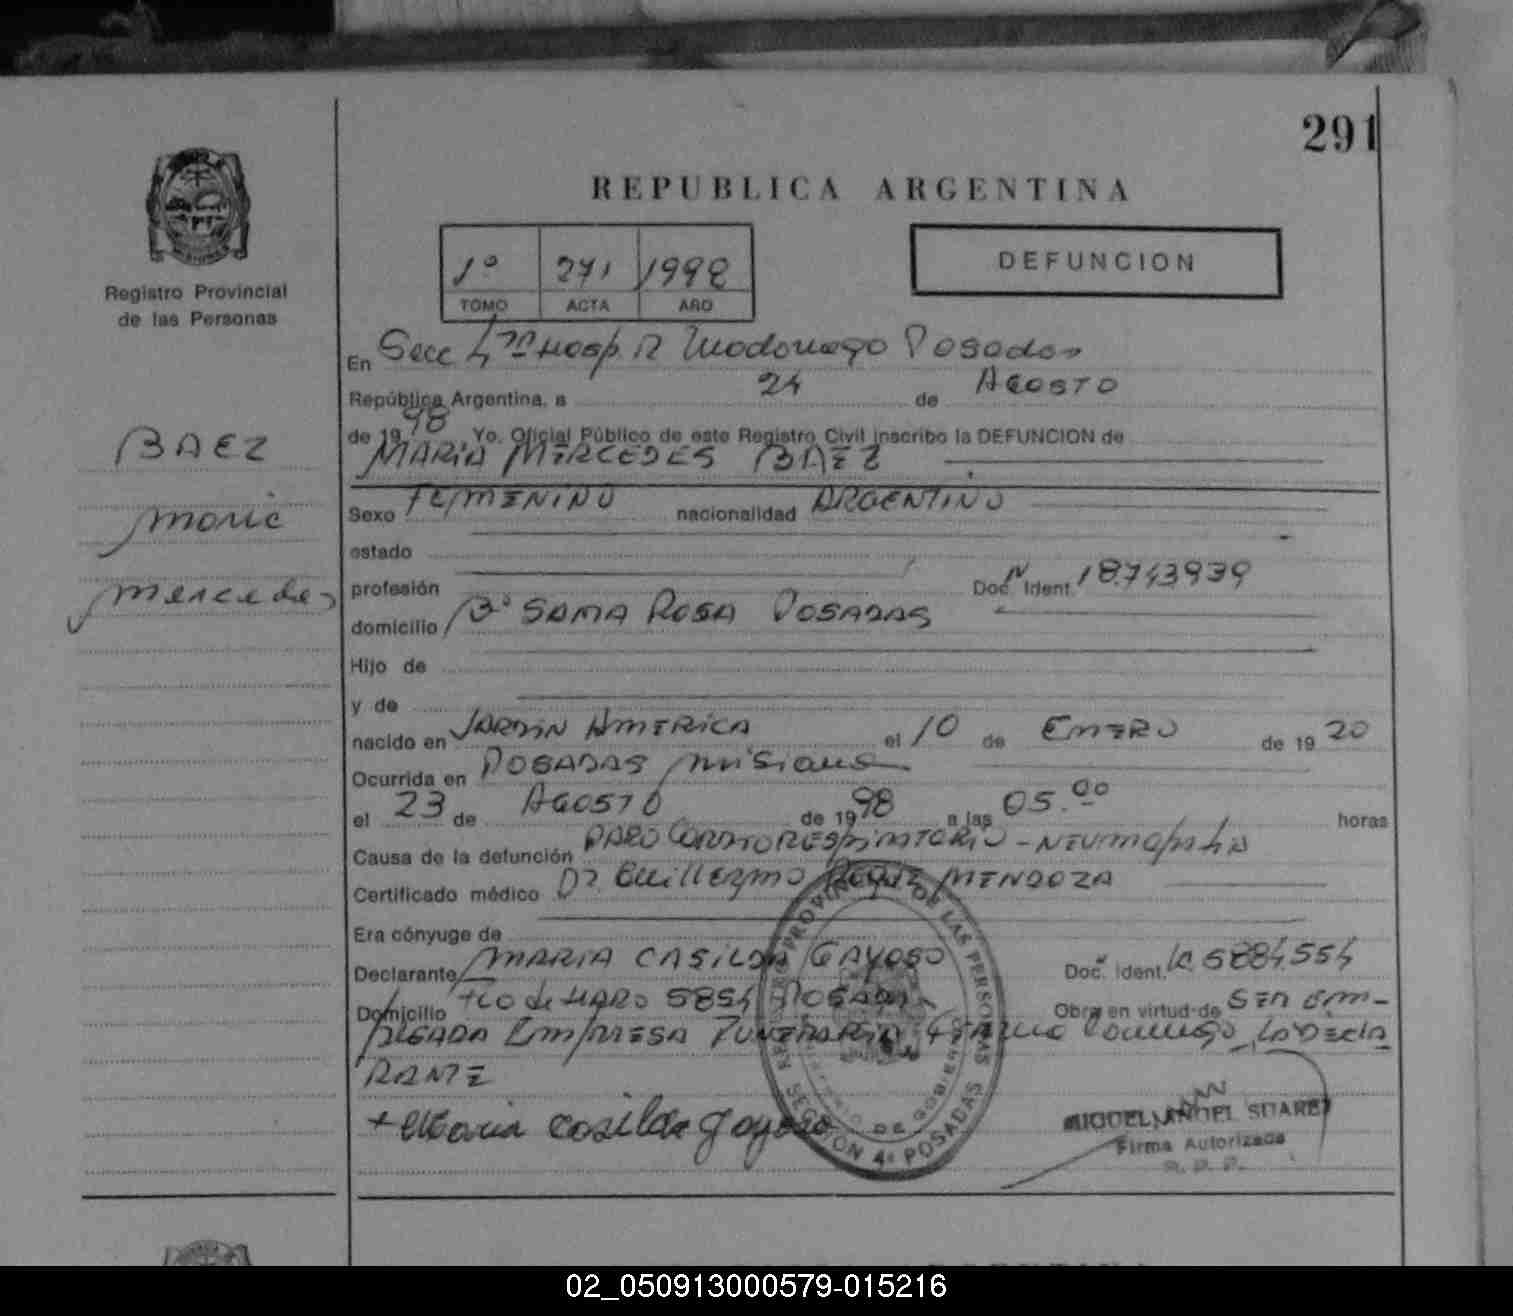 291
REPUBLICA ARGENTINA
1º 271 1998
TOMO ACTA AÑO
DEFUNCION
Registro Provincial
de las Personas
BAEZ
Maria
Mercedes
En Secc 4ta Hosp. R Madariaga Posadas
República Argentina, a 24 de AGOSTO
de 1998, Yo, Oficial Público de este Registro Civil inscribo la DEFUNCION de
MARIA MERCEDES BAEZ
Sexo FEMENINO nacionalidad ARGENTINO
estado
profesión Doc. Ident. Nº 18.743939
domicilio Bº SANTA ROSA POSADAS
Hijo de
y de
nacido en JARDIN AMERICA el 10 de ENERO de 1920
Ocurrida en POSADAS Misiones
el 23 de AGOSTO de 1998 a las 05.00 horas
Causa de la defunción PARO CARDIORESPIRATORIO - NEUMOPATIA
Certificado médico Dr. Guillermo ROQUE MENDOZA
Era cónyuge de
Declarante MARIA CASILDA GAYOSO Doc. Ident. LC 5884554
Domicilio Fco de HARO 5854 POSADAS Obra en virtud de SER EM-
PLEADA EMPRESA FUNERARIA LA DECLA
RANTE
+ Maria Casilda Gayoso
REGISTRO PROVINCIAL DE LAS PERSONAS
MINISTERIO DE GOBIERNO
SECCION 4ª POSADAS
MIGUEL ANGEL SUAREZ
Firma Autorizada
R. P. P.
02_050913000579-015216